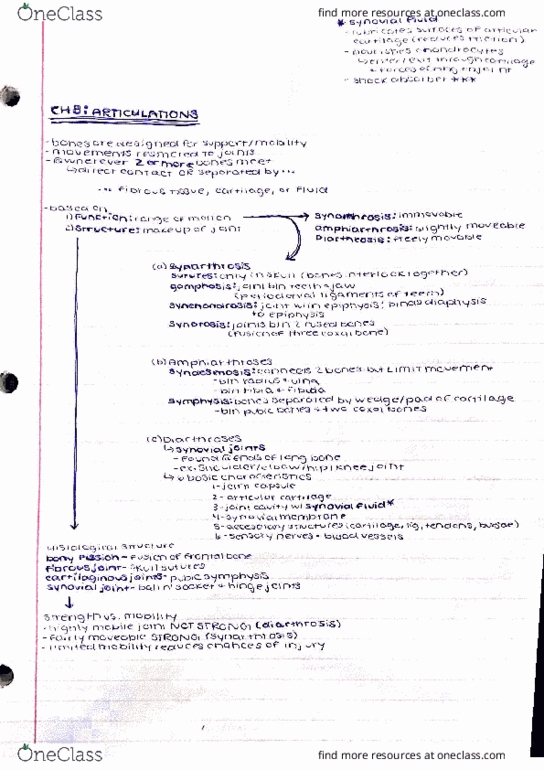 OneClass
find more resources at oneclass.com
* Synovial Fluid
- lubricates surfaces of articular
cartilage (reduces friction)
- nourishes chondrocytes
↳ enter/exit through cartilage
- shock absorber ***
CH 8: ARTICULATIONS
- bones are designed for support/mobility
- movements restricted to joints
- wherever 2 or more bones meet
↳ direct contact OR separated by...
... fibrous tissue, cartilage, or fluid
- based on
1) Function: range of motion → Synarthrosis: immovable
2) Structure: makeup of joint amphiarthrosis: slightly moveable
Diarthrosis: freely movable
(a) Synarthrosis
sutures: only in skull (bones interlock together)
gomphosis: joint b/n teeth + jaw
(periodontal ligaments of teeth)
synchondrosis: joint w/in epiphysis: binds diaphysis
to epiphysis
Synostosis: joints b/n 2 fused bones
(fusion of three coxal bone)
(b) Amphiarthroses
Syndesmosis: connects 2 bones but LIMIT movement
- b/n radius + ulna
- b/n tibia + fibula
symphysis: bones separated by wedge/pad of cartilage
- b/n pubic bones + two coxal bones
(c) Diarthroses
↳ synovial joints
- found @ ends of long bone
- ex: shoulder/elbow/hip/knee joint
↳ 6 basic characteristics
1- joint capsule
2- articular cartilage
3- joint cavity w/ synovial fluid*
4- synovial membrane
5- accessory structures (cartilage, lig, tendons, bursae)
6- sensory nerves + blood vessels
structure
bony fusion- fusion of frontal bone
fibrous joint- skull sutures
cartilaginous joints- pubic symphysis
synovial joint- ball n' socket + hinge joints
↓
Strength vs. mobility
- highly mobile joint NOT STRONG (diarthrosis)
- fairly moveable STRONG (synarthrosis)
- limited mobility reduces chances of injury
OneClass
find more resources at oneclass.com